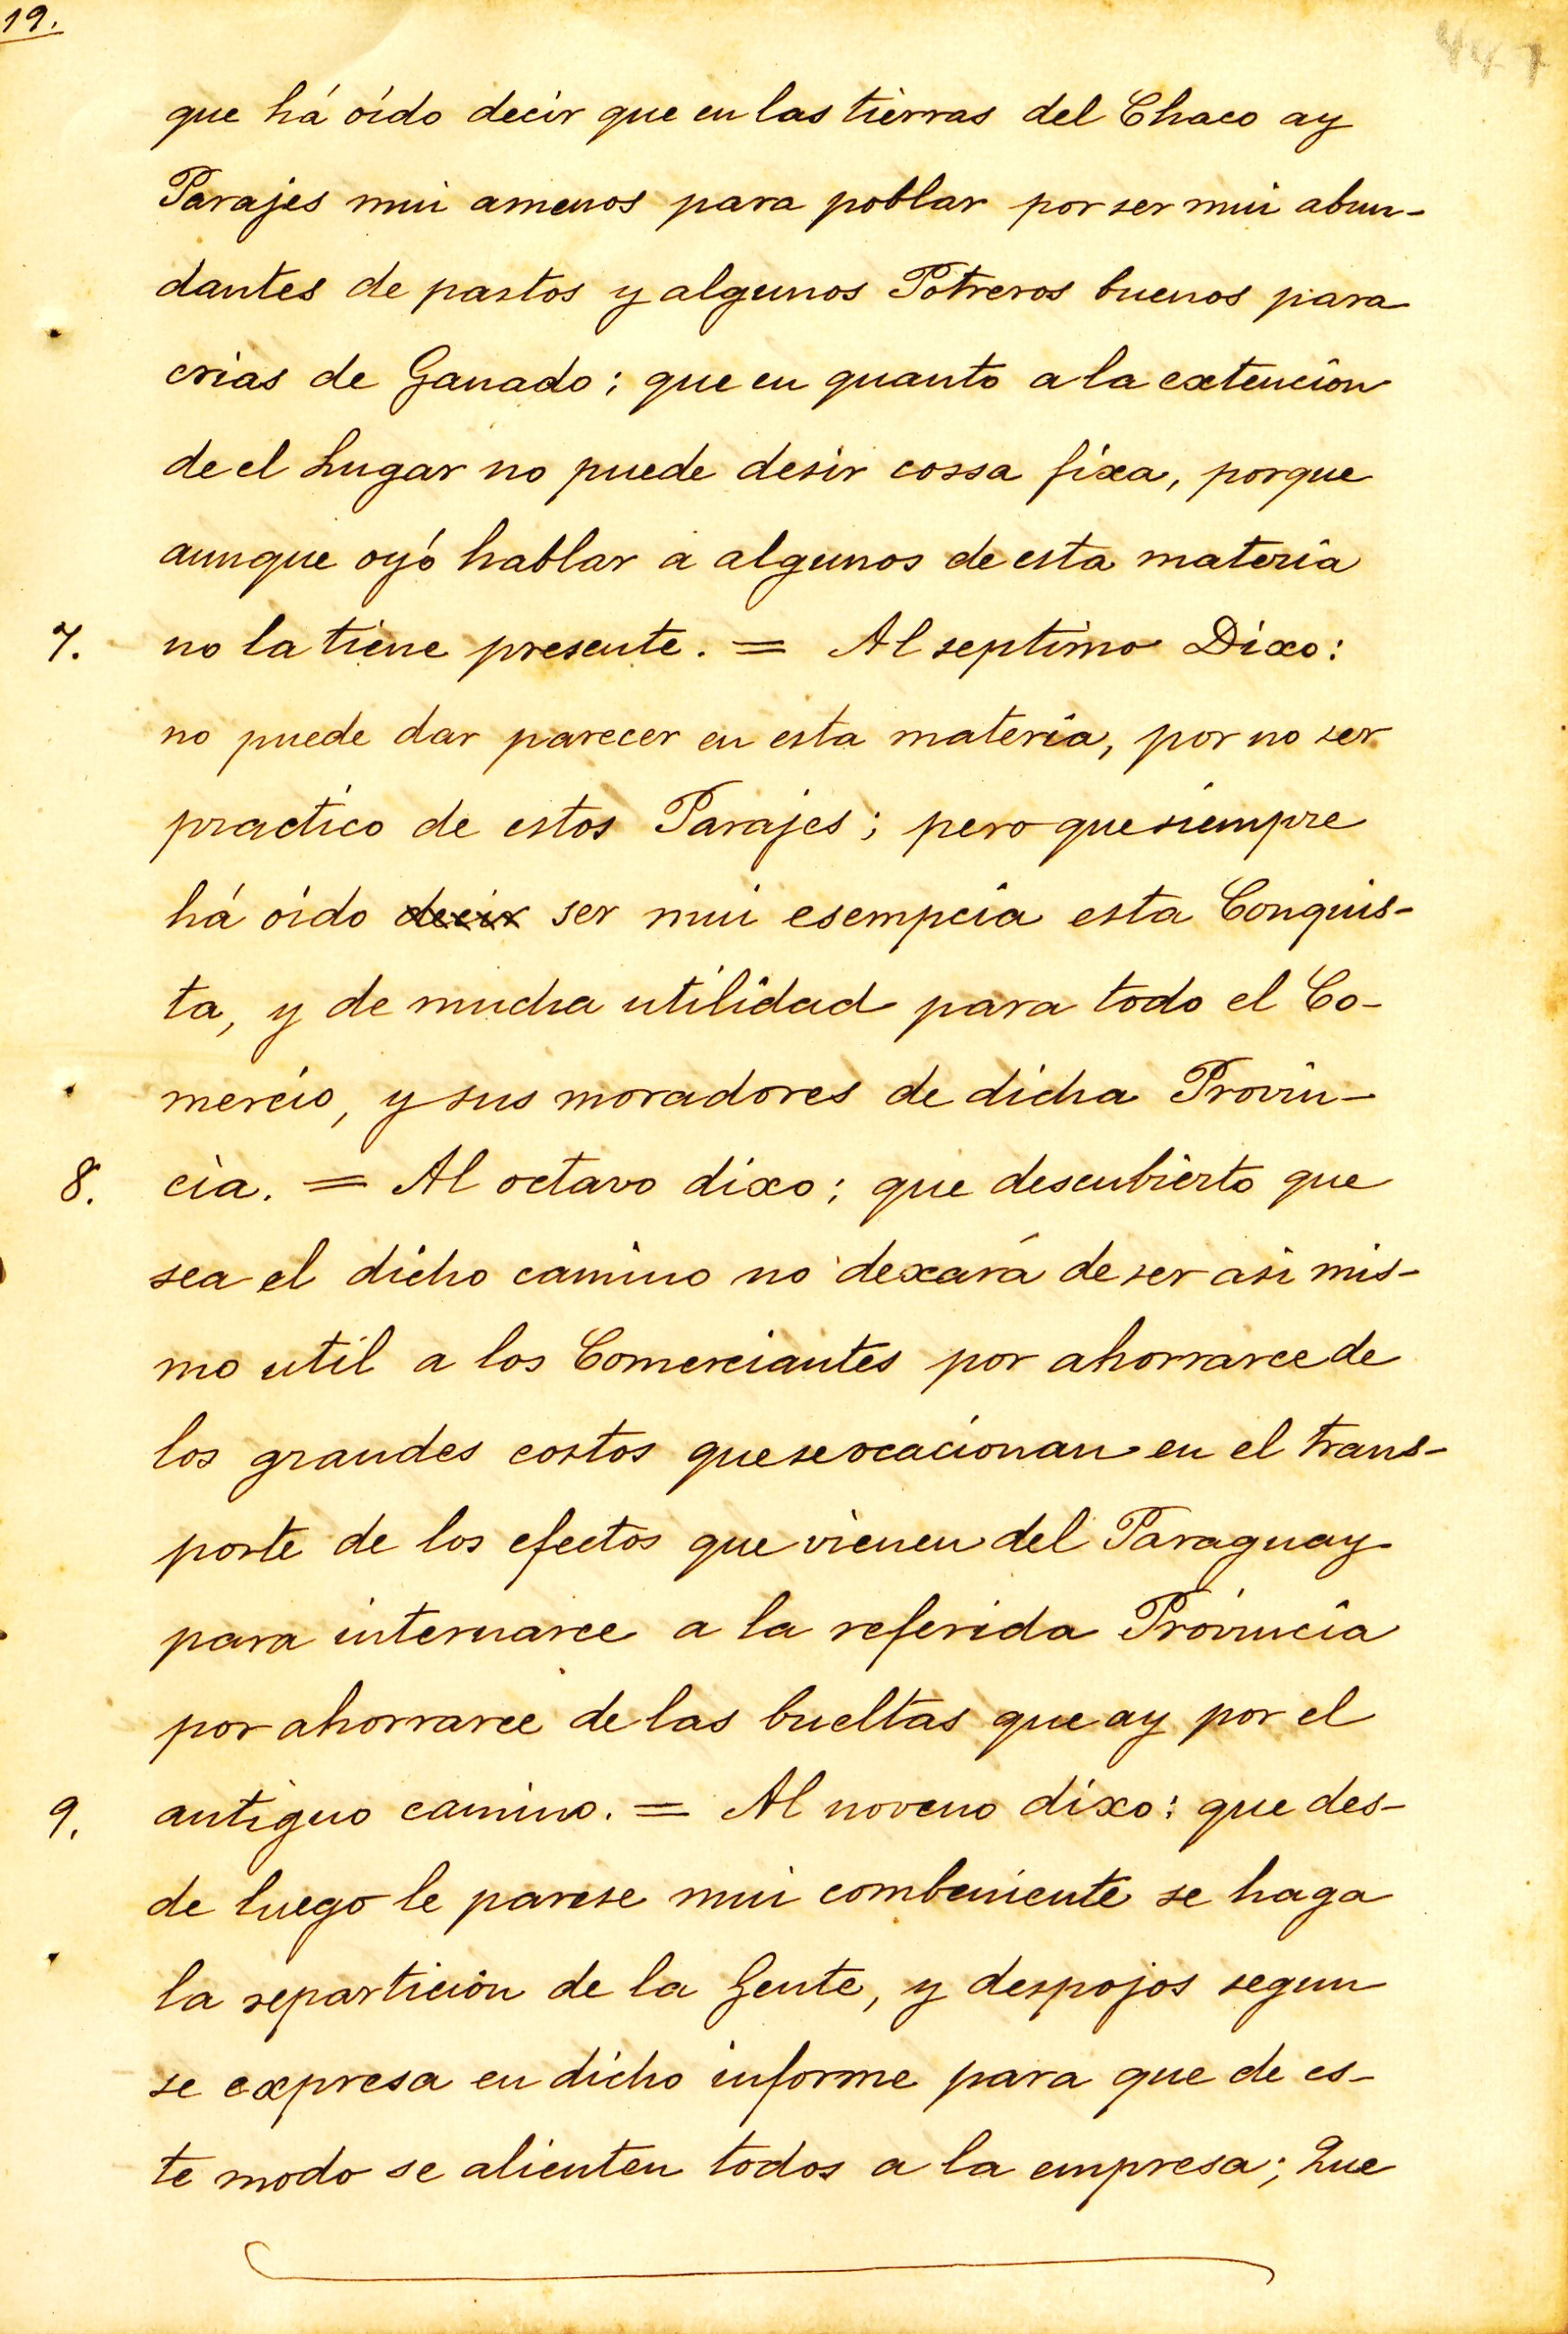 19.
447
que há oído decir que en las tierras del Chaco ay
Parajes mui amenos para poblar por ser mui abun-
dantes de pastos y algunos Potreros buenos para
crias de Ganado; que en quanto a la extencion
de el Lugar no puede desir cossa fixa, porque
aunque oyó hablar a algunos de esta materia
7. no la tiene presente. = Al septimo Dixo:
no puede dar parecer en esta materia, por no ser
practico de estos Parajes; pero que siempre
há oído decir ser mui esempcia esta Conquis-
ta, y de mucha utilidad para todo el Co-
mercio, y sus moradores de dicha Provin-
8. cia. = Al octavo dixo; que descubierto que
sea el dicho camino no dexará de ser asi mis-
mo util a los Comerciantes por ahorrarce de
los grandes costos que se ocacionan en el trans-
porte de los efectos que vienen del Paraguay
para internarce a la referida Provincia
por ahorrarce de las bueltas que ay por el
9. antiguo camino. = Al noveno dixo: que des-
de luego le parese mui combeniente se haga
la reparticion de la Gente, y despojos segun
se expresa en dicho informe para que de es-
te modo se alienten todos a la empresa; Que